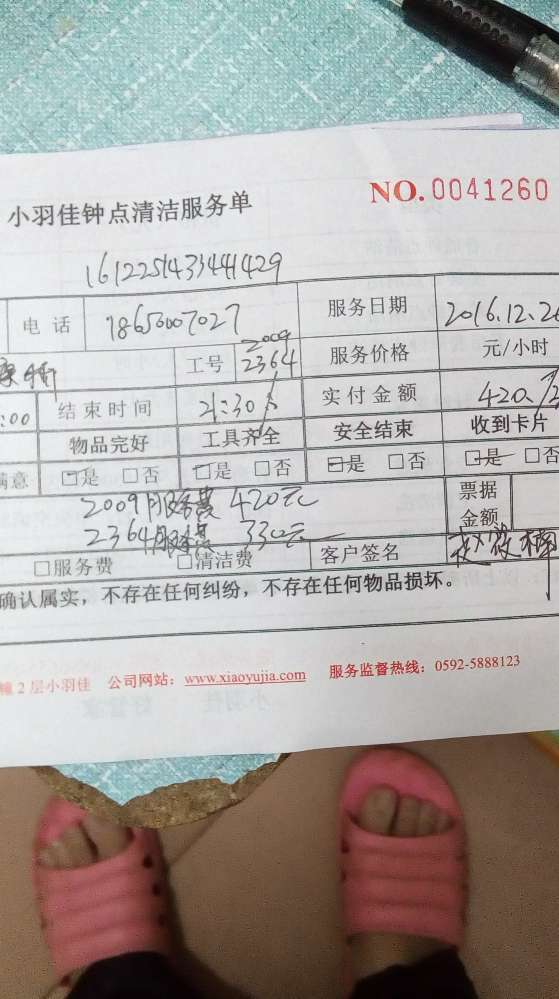 小羽佳钟点清洁服务单 NO. 0041260
1612251433441429
电话 18650007027 服务日期 2016.12.26
工号 2009 2364 服务价格 元/小时
:00 结束时间 21:30 实付金额 420.
物品完好 工具齐全 安全结束 收到卡片
满意 是 □否 是 □否 是 □否 是 □否
2009 服务费 420元 票据金额
2364 服务费 330元
□服务费 □清洁费 客户签名
确认属实，不存在任何纠纷，不存在任何物品损坏。
幢2层小羽佳 公司网站：www.xiaoyujia.com 服务监督热线：0592-5888123